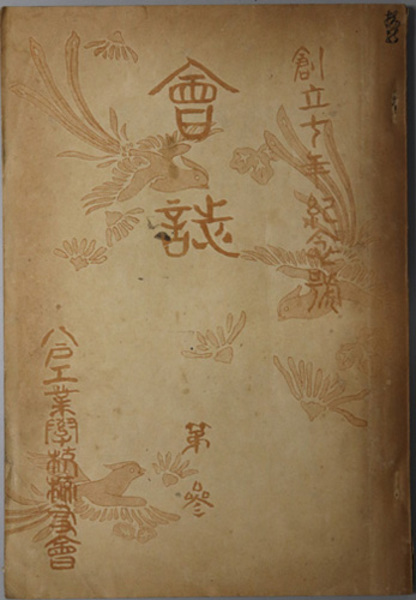 創立十年紀念號
會誌
第參
八戶工業學校校友會